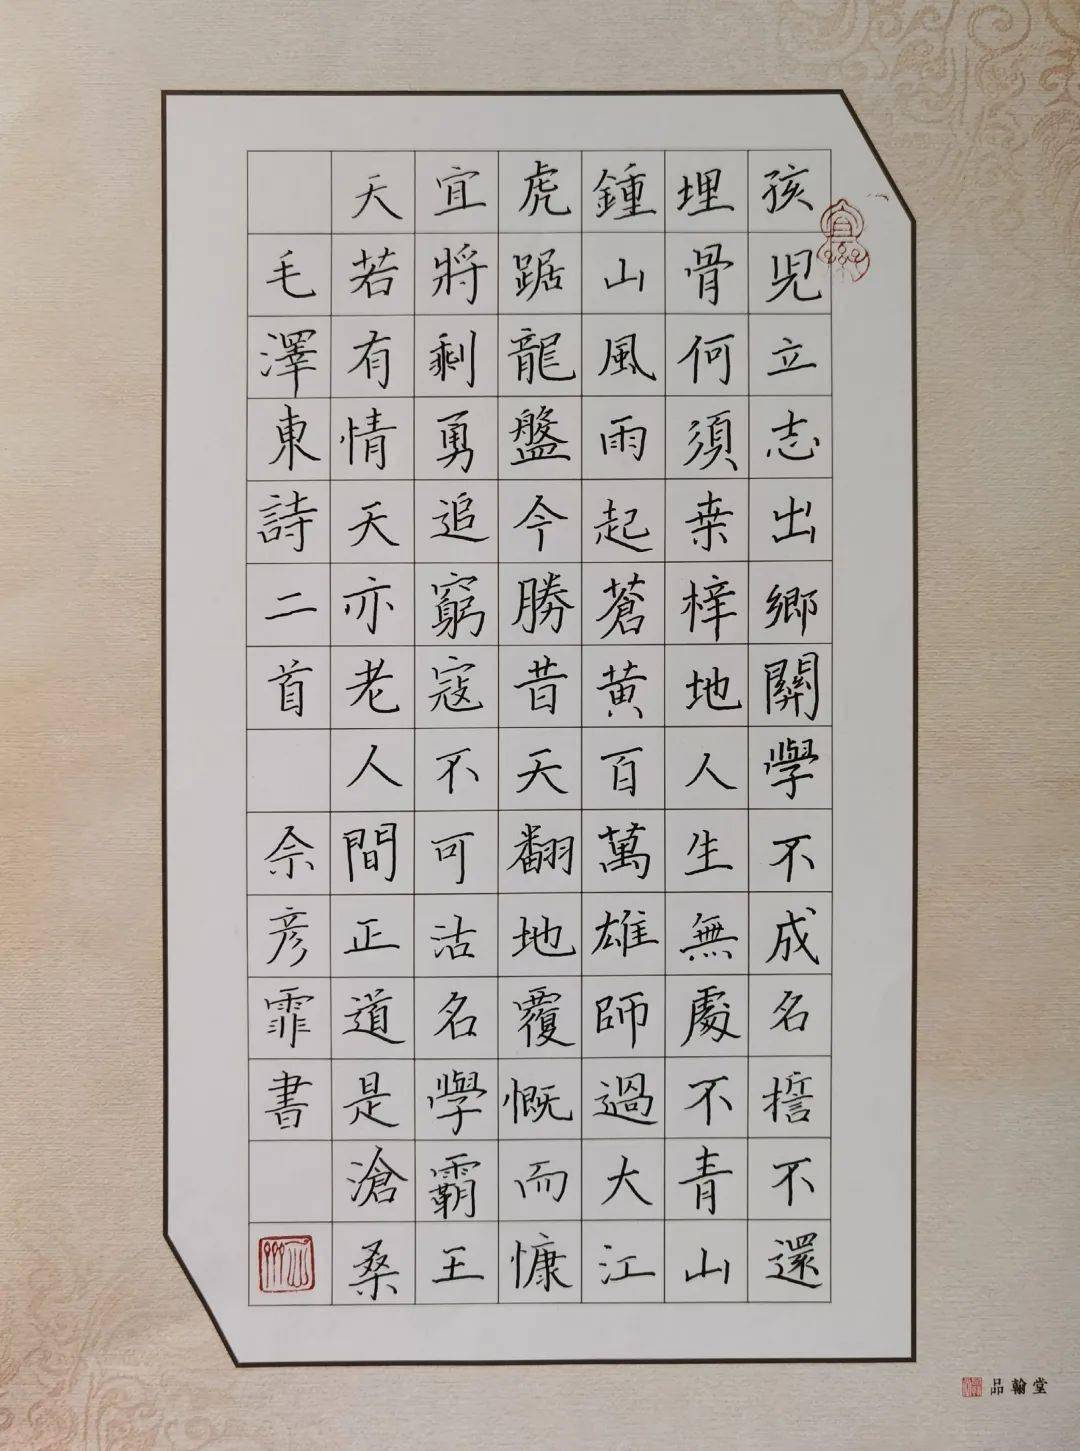 孩兒立志出鄉關學不成名誓不還
埋骨何須桒梓地人生無處不青山
鍾山風雨起蒼黃百萬雄師過大江
虎踞龍盤今勝昔天翻地覆慨而慷
宜將剩勇追窮寇不可沽名學霸王
天若有情天亦老人間正道是滄桑
毛澤東詩二首 佘彥霏書
品翰堂